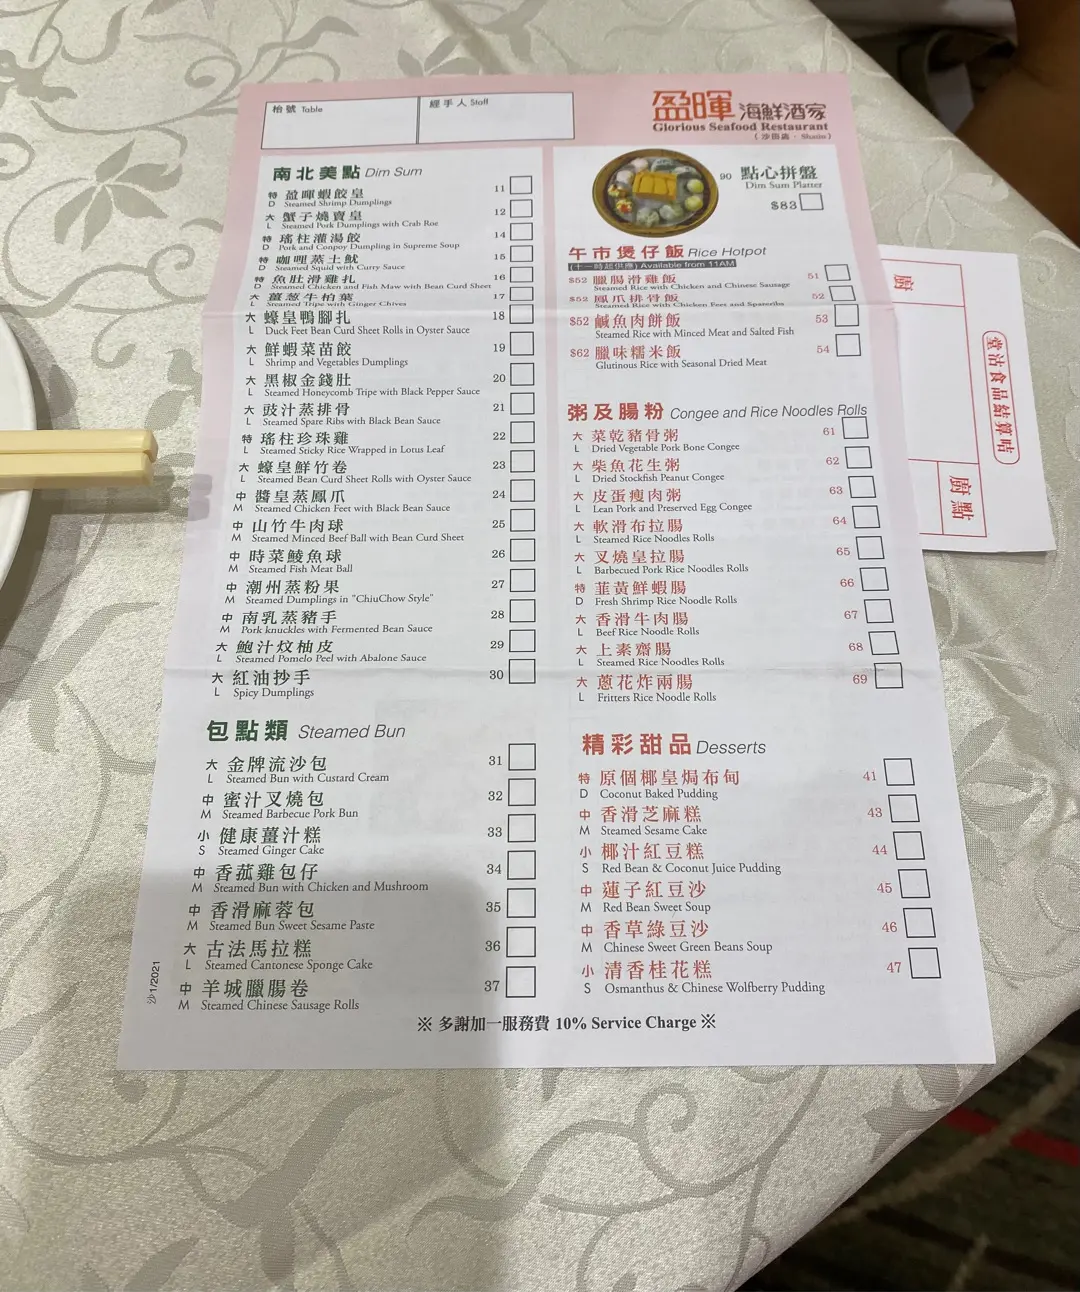 枱號 Table
經手人 Staff
盈暉 海鮮酒家
Glorious Seafood Restaurant
(沙田店 - Shatin)
南北美點 Dim Sum
特 盈暉蝦餃皇 11
D Steamed Shrimp Dumplings
大 蟹子燒賣皇 12
L Steamed Pork Dumplings with Crab Roe
特 瑤柱灌湯餃 14
D Pork and Conpoy Dumpling in Supreme Soup
特 咖喱蒸土魷 15
D Steamed Squid with Curry Sauce
特 魚肚滑雞扎 16
D Steamed Chicken and Fish Maw with Bean Curd Sheet
大 薑葱牛柏葉 17
L Steamed Tripe with Ginger Chives
大 蠔皇鴨腳扎 18
L Duck Feet Bean Curd Sheet Rolls in Oyster Sauce
大 鮮蝦菜苗餃 19
L Shrimp and Vegetables Dumplings
大 黑椒金錢肚 20
L Steamed Honeycomb Tripe with Black Pepper Sauce
大 豉汁蒸排骨 21
L Steamed Spare Ribs with Black Bean Sauce
特 瑤柱珍珠雞 22
L Steamed Sticky Rice Wrapped in Lotus Leaf
大 蠔皇鮮竹卷 23
L Steamed Bean Curd Sheet Rolls with Oyster Sauce
中 醬皇蒸鳳爪 24
M Steamed Chicken Feet with Black Bean Sauce
中 山竹牛肉球 25
M Steamed Minced Beef Ball with Bean Curd Sheet
中 時菜鯪魚球 26
M Steamed Fish Meat Ball
中 潮州蒸粉果 27
M Steamed Dumplings in "ChiuChow Style"
中 南乳蒸豬手 28
M Pork knuckles with Fermented Bean Sauce
大 鮑汁炆柚皮 29
L Steamed Pomelo Peel with Abalone Sauce
大 紅油抄手 30
L Spicy Dumplings
包點類 Steamed Bun
大 金牌流沙包 31
L Steamed Bun with Custard Cream
中 蜜汁叉燒包 32
M Steamed Barbecue Pork Bun
小 健康薑汁糕 33
S Steamed Ginger Cake
中 香菰雞包仔 34
M Steamed Bun with Chicken and Mushroom
中 香滑麻蓉包 35
M Steamed Bun Sweet Sesame Paste
大 古法馬拉糕 36
L Steamed Cantonese Sponge Cake
中 羊城臘腸卷 37
M Steamed Chinese Sausage Rolls
90 點心拼盤
Dim Sum Platter
$83
午市煲仔飯 Rice Hotpot
(十一時起供應) Available from 11AM
$52 臘腸滑雞飯 51
Steamed Rice with Chicken and Chinese Sausage
$52 鳳爪排骨飯 52
Steamed Rice with Chicken Feet and Spareribs
$52 鹹魚肉餅飯 53
Steamed Rice with Minced Meat and Salted Fish
$62 臘味糯米飯 54
Glutinous Rice with Seasonal Dried Meat
粥及腸粉 Congee and Rice Noodles Rolls
大 菜乾豬骨粥 61
L Dried Vegetable Pork Bone Congee
大 柴魚花生粥 62
L Dried Stockfish Peanut Congee
大 皮蛋瘦肉粥 63
L Lean Pork and Preserved Egg Congee
大 軟滑布拉腸 64
L Steamed Rice Noodles Rolls
大 叉燒皇拉腸 65
L Barbecued Pork Rice Noodles Rolls
特 韮黃鮮蝦腸 66
D Fresh Shrimp Rice Noodle Rolls
大 香滑牛肉腸 67
L Beef Rice Noodle Rolls
大 上素齋腸 68
L Steamed Rice Noodles Rolls
大 蔥花炸兩腸 69
L Fritters Rice Noodle Rolls
精彩甜品 Desserts
特 原個椰皇焗布甸 41
D Coconut Baked Pudding
中 香滑芝麻糕 43
M Steamed Sesame Cake
小 椰汁紅豆糕 44
S Red Bean & Coconut Juice Pudding
中 蓮子紅豆沙 45
M Red Bean Sweet Soup
中 香草綠豆沙 46
M Chinese Sweet Green Beans Soup
小 清香桂花糕 47
S Osmanthus & Chinese Wolfberry Pudding
沙1/2021
※ 多謝加一服務費 10% Service Charge ※
廚
堂沽食品結算咭
廚點